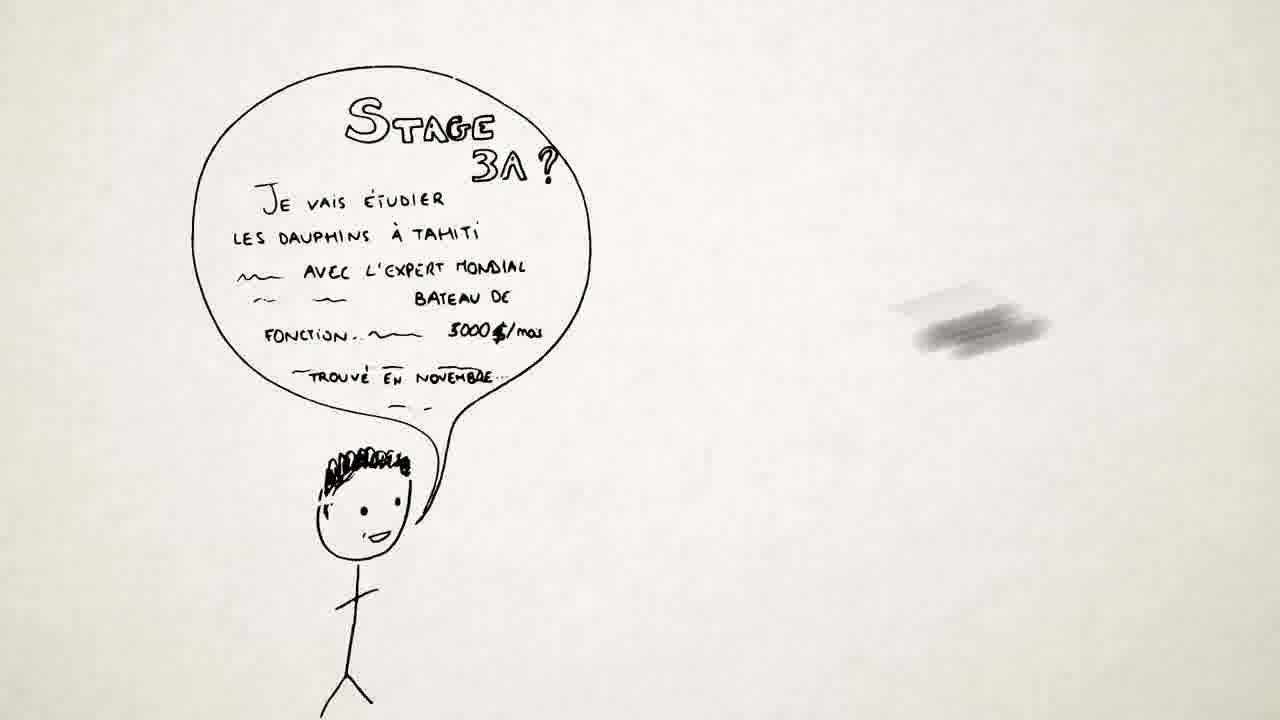 STAGE
3A ?
JE VAIS ÉTUDIER
LES DAUPHINS À TAHITI
AVEC L'EXPERT MONDIAL
BATEAU DE
FONCTION.. 5000 $/mois
TROUVÉ EN NOVEMBRE...